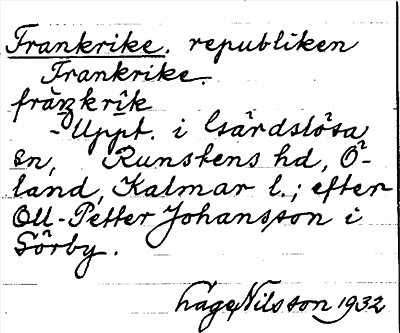 Frankrike. republiken
Frankrike.
fráŋkrìk
- Uppt. i Gärdslösa
sn, Runstens hd, Ö-
land, Kalmar l.; efter
Oll-Petter Johansson i
Sörby.
Håge Nilsson 1932